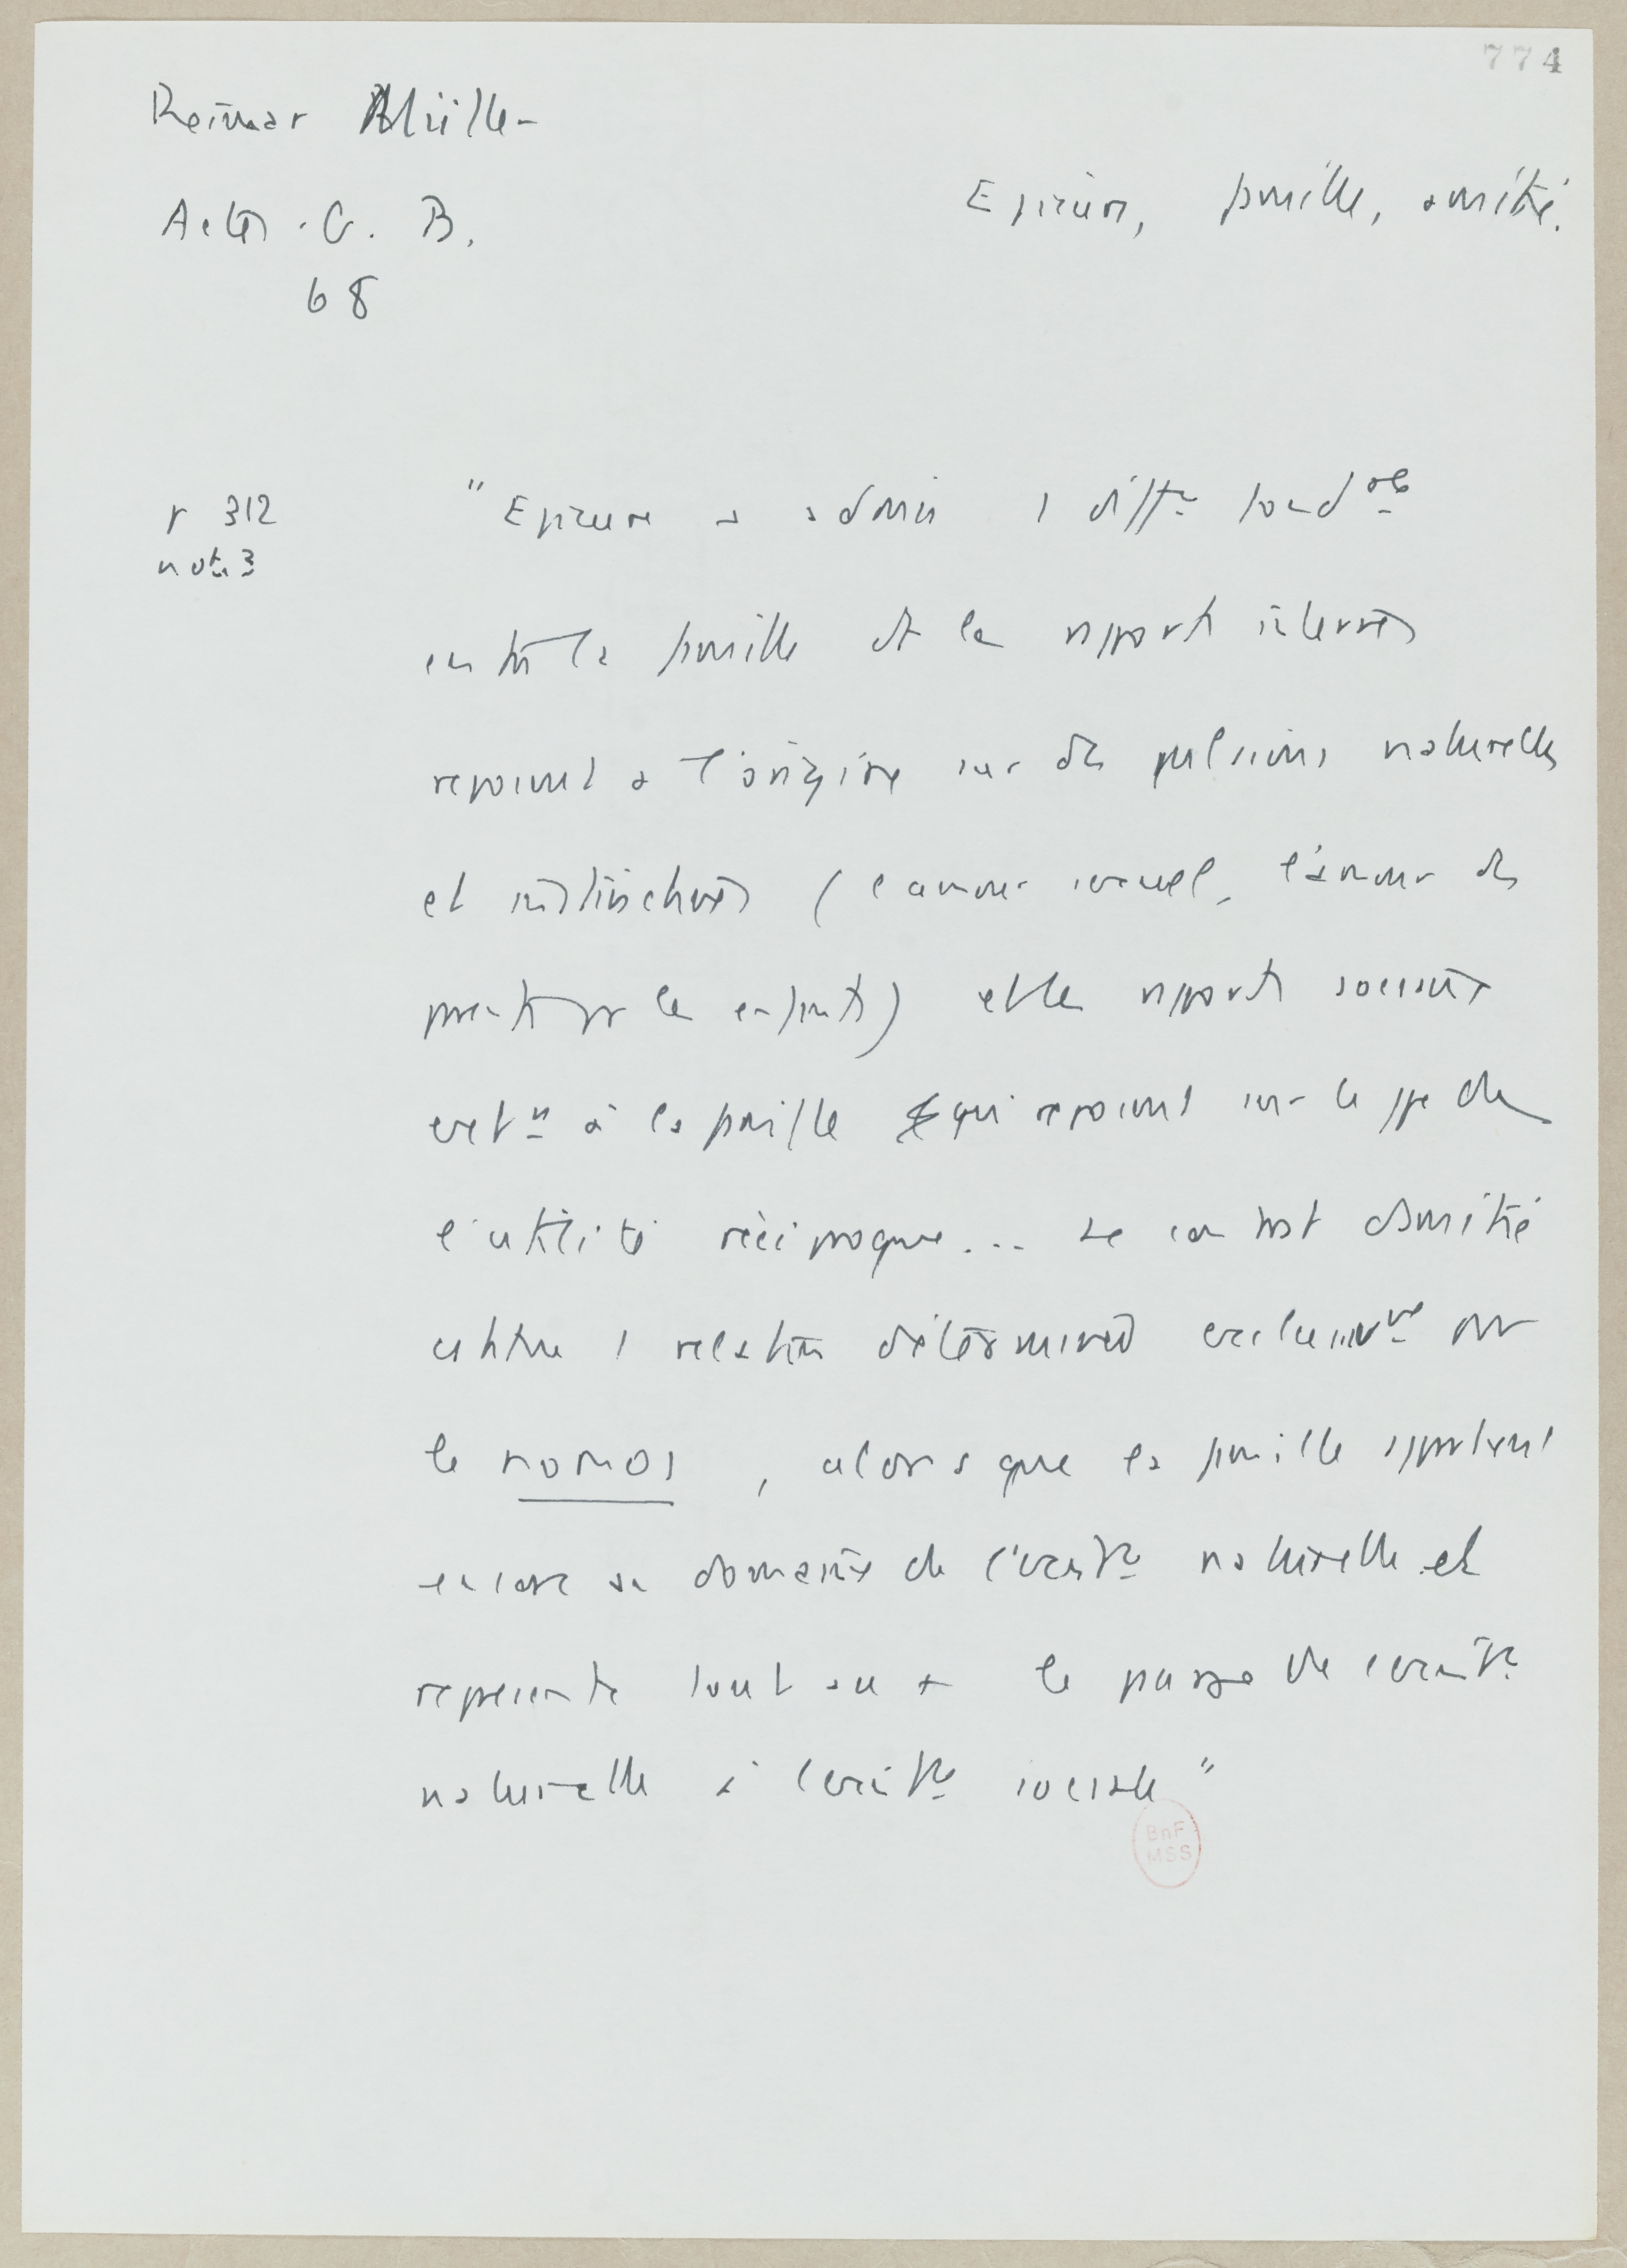 774
Reimar Müller
Actes. G. B.
68
Epicure, famille, amitié.
p 312
note 3
" Epicure a admis 1 diffce fondale
entre la famille et les rapports internes
reposent a l'origine sur des pulsions naturelles
et instinctives (l'amour sexuel, l'amour des
parents pr les enfants) et les rapports sociaux
extrs à la famille qui reposent sur le ppe de
l'utilité réciproque... Le contrat d'amitié
est une 1 relation déterminée exclusivt par
le nomos, alors que la famille appartient
encore au domaine de l'existce naturelle et
represente tout au + le passage de l'existce
naturelle à l'existce sociale "
BnF
MSS